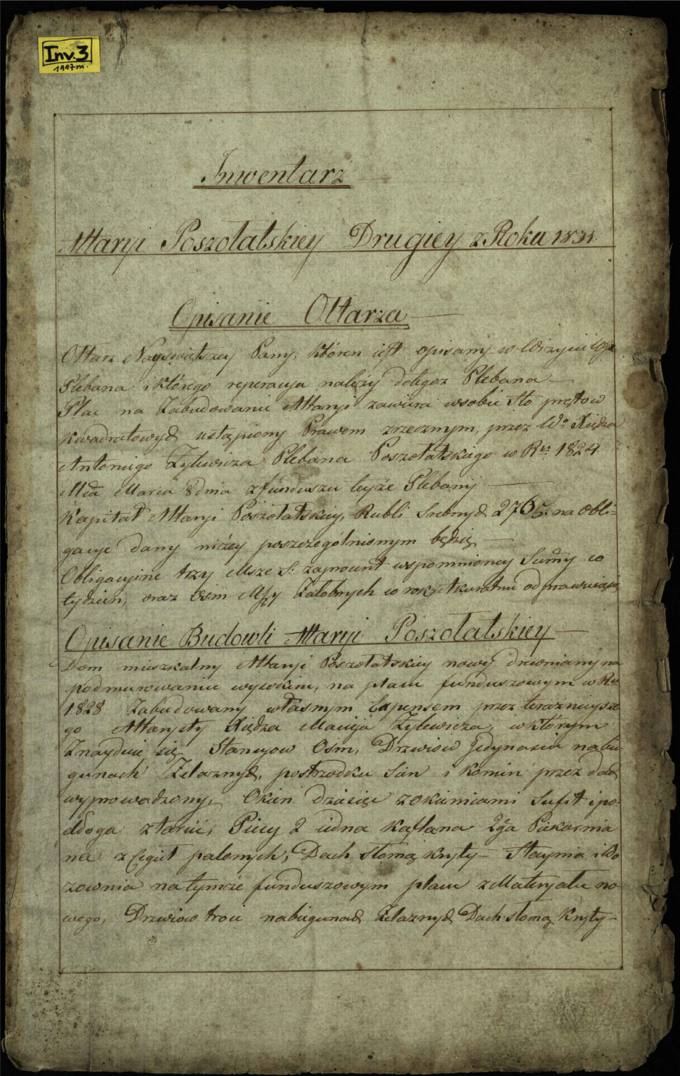 Inv. 3
1997 m.
Inwentarz
Altaryi Poszołatskiey Drugiey z Roku 1831
Opisanie Ołtarza
Ołtarz Nayświętszey Panny, któren iest opisany w Wizycie
Plebana i którego reperacya należy do tegoż Plebana
Plac na Zabudowanie Altaryi zawiera w sobie sto prętów
kwadratowych ustąpiony Prawem zrzecznym, przez Wo Xiędza
Antoniego Żylewicza Plebana Poszołatskiego w Rku 1824
Mca Marca 8 dnia z funduszu teyże Plebanij
Kapitał Altaryi Poszołatskiey, Rubli Srebnych 2765. na Obli-
gacye dany niżey poszczegolnionym będzie
Obligacyine trzy Msze S. zaprocent wspomnioney Summy co
tydzień, oraz Osm Mszy Żałobnych co rok odprawuią
Opisanie Budowli Altaryi Poszołatskiey
Dom mieszkalny Altaryi Poszołatskiey nowy drewniany na
podmurowaniu wysokim, na placu funduszowym w Rku
1828 Zabudowany własnym Expensem przez teraznieysze-
go Altarystę Xiędza Macieja Żylewicza, w którym
Znayduie się Stancyow Osm, Drzwiow Jedynaście na bie-
gunach Żelaznych, postrzodku Sień i komin przez dach
wyprowadzony, Okien dziesięć z okienicami Sufit i po-
dłoga z tarcic, Piecy 2 iedna kaflana 2ga Piekarnia
na z Cegieł palonych, Dach słomą kryty – Staynia i Wo
zownia na tymże funduszowym placu z Materyału no-
wego, Drzwiow troie na biegunach Żelaznych Dach słomą kryty –